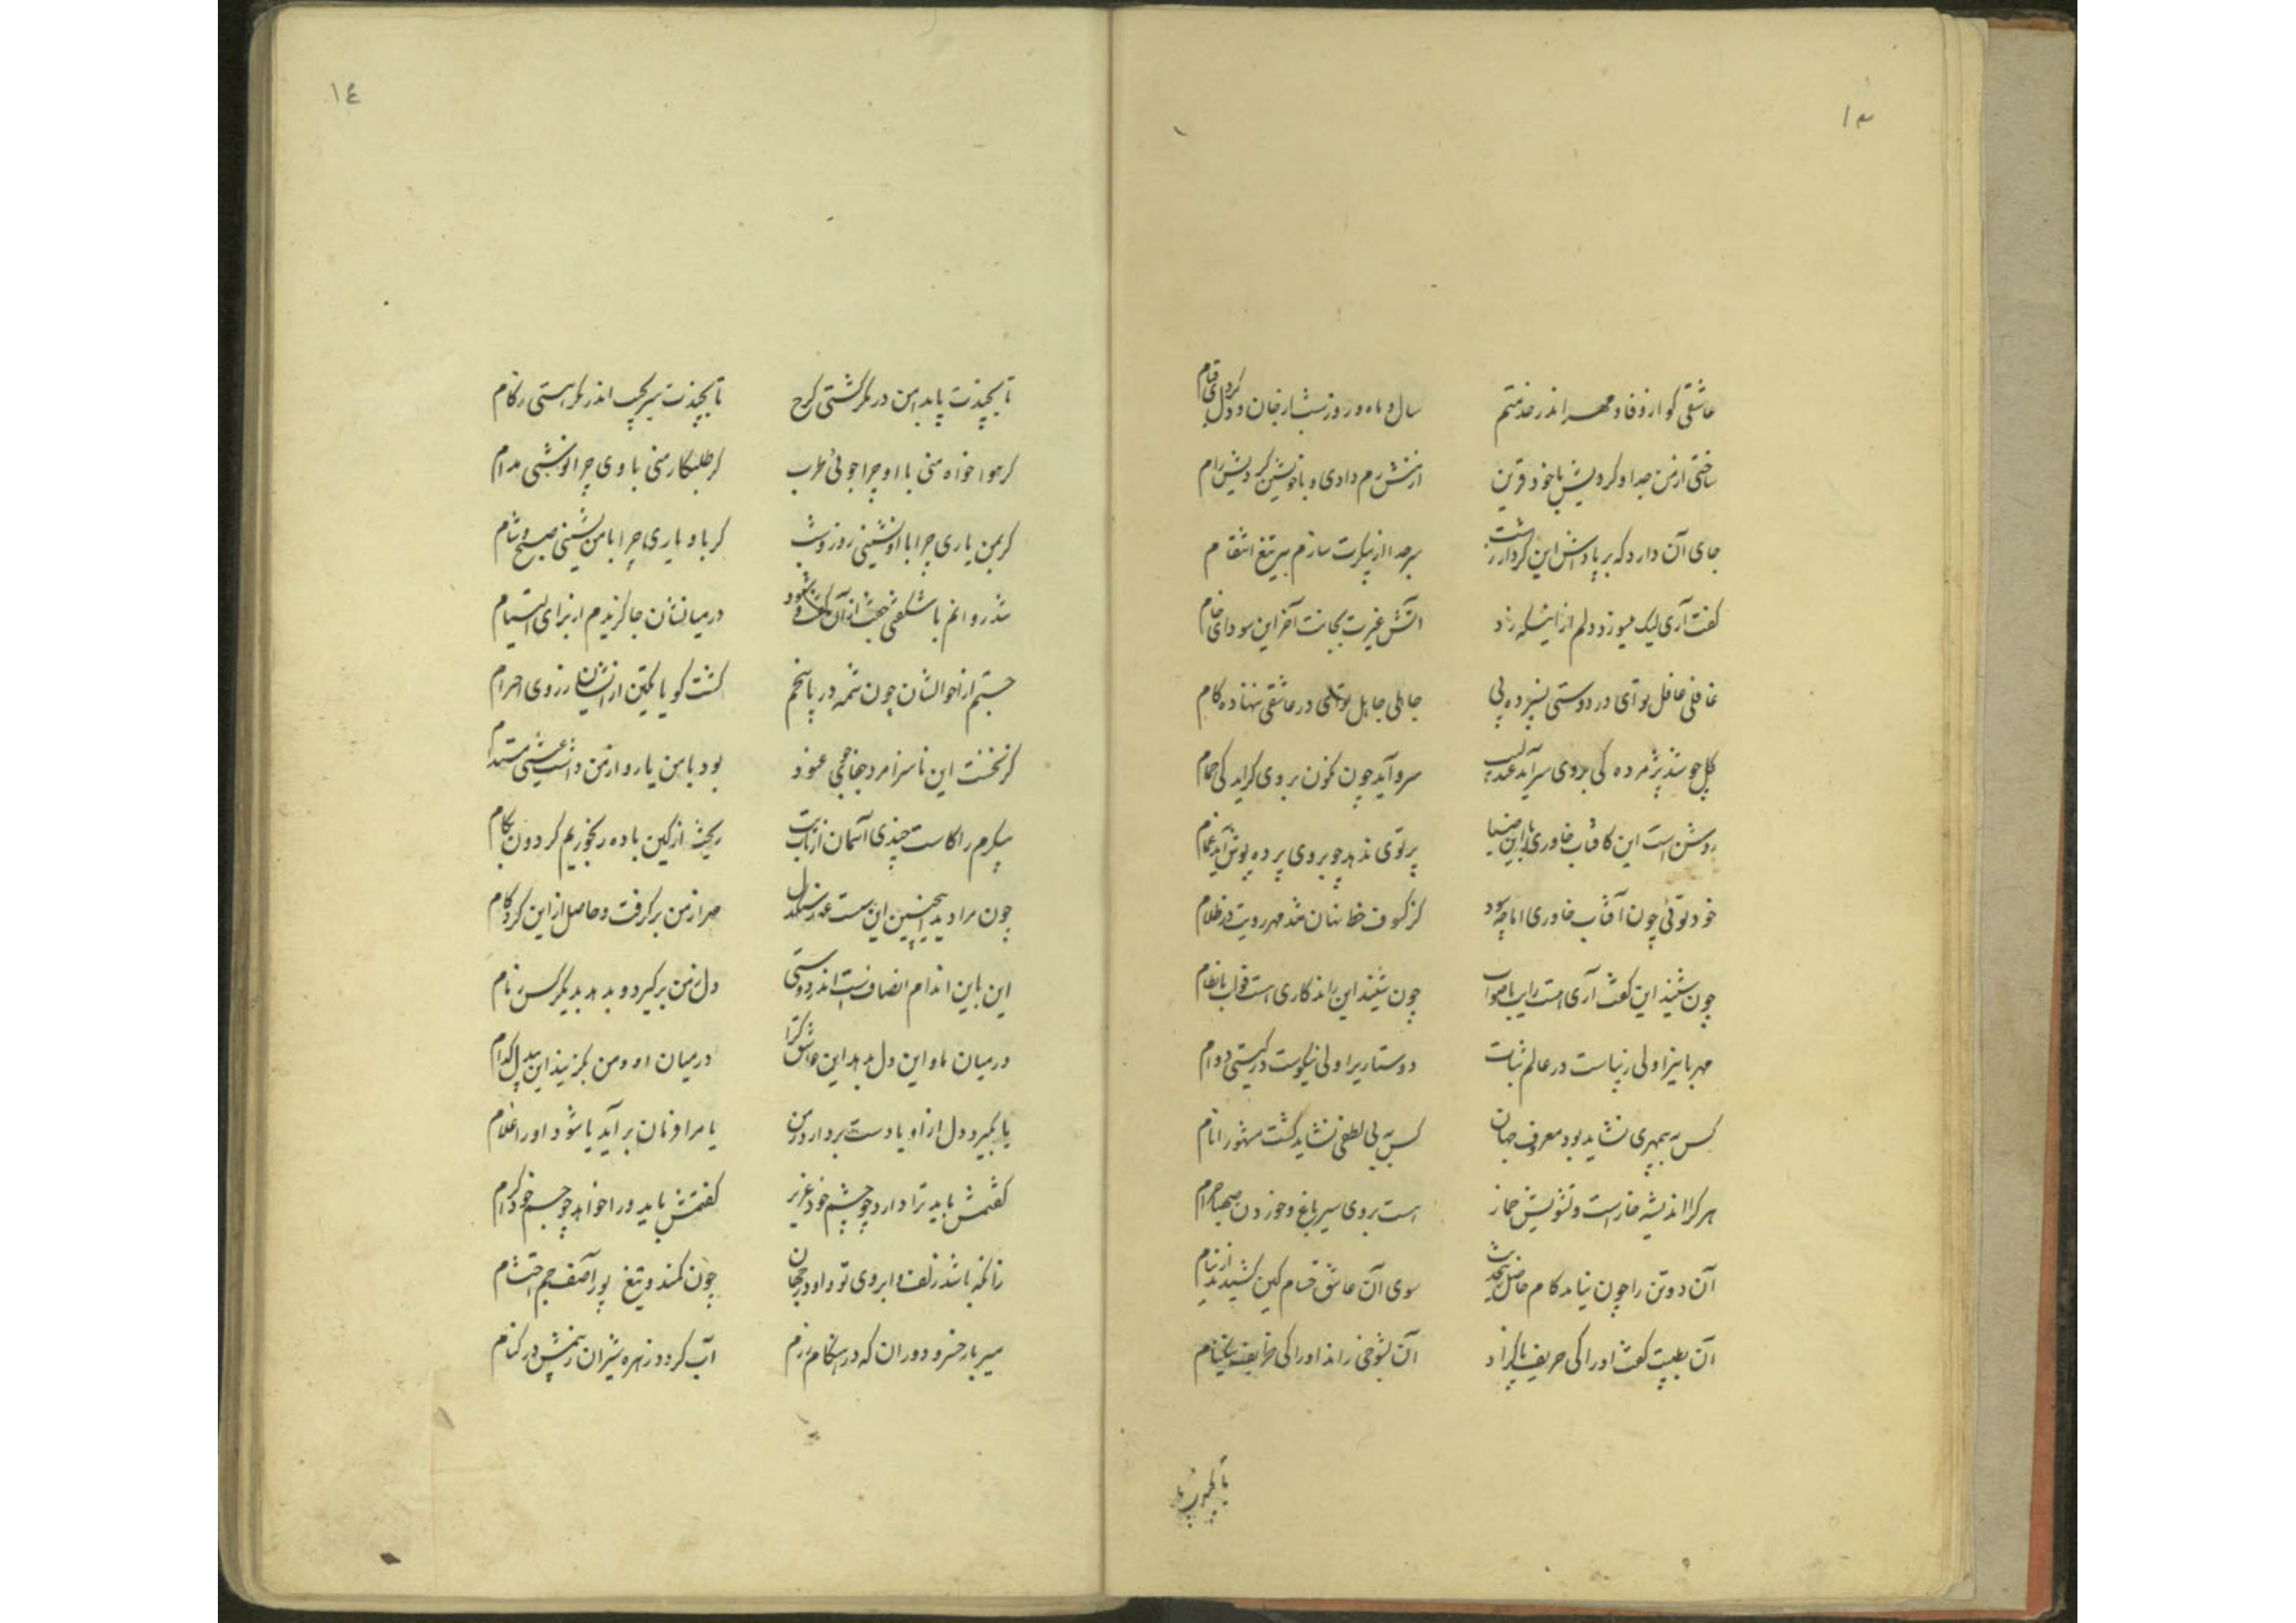 ۱۳
عاشقی کو از وفا و مهر اندر خدمتم
سال و ماه و روز و شب از جان و دل کردی قیام
ساختی از من جدا و کردیش با خود قرین
از منش رم دادی و با خویشتن کردیش رام
جای آن دارد که بر پاداش این کردار زشت
سر جدا از پیکرت سازم به تیغ انتقام
گفت آری لیک میسوزد دلم از اینکه زد
آتش غیرت بجانت آخر این سودای خام
غافلی غافل بوَدی در دوستی نسپرده پی
جاهلی جاهل در عاشقی ننهاده کام
گل چو شد پژمرده کی بر وی سراید عندلیب
سرو آید چون نگون بر وی گراید کی حمام
روشن است این کافتاب خاوری با این ضیا
پرتوی ندهد چو بر وی پرده پوش آید غمام
خود توئی چون آفتاب خاوری اما چه سود
کز کسوف خط نهان شد مهر رویت در ظلام
چون شنید این گفت آری هست رایت با صواب
چون شنید این راند کاری هست قولت با نظام
مهربانی را ولی زیباست در عالم ثبات
دوستاری را ولی نیکوست در گیتی دوام
کس به بیمهری نشاید بود معروف جهان
کس به بی لطفی نشاید گشت مشهور انام
هر کرا اندیشه خار است و تشویش خمار
هست بروی سیر باغ و خوردن صهبا حرام
آن دو تن را چون نیامد کام حاصل
سوی آن عاشق حسام کین کشیدند از نیام
آن گفت او را کی حریف پاکزاد
آن بشوخی راند او را کی
۱٤
تا بچندت پا بدامن در مگر گشتی گرج
تا بچندت سر بجیب اندر مگر هستی زکام
گر هواخواه منی با او چرا جوئی طرب
گر طلبکار منی با وی چرا نوشی مدام
گر بمن یاری چرا با او نشینی روز و شب
گر باو یاری چرا با من نشینی صبح و شام
شد روانم با شگفتی جفت از آن گفت و شنود
در میانشان جا گزیدم از برای التیام
جستم از احوالشان چون شمه در پاسخم
گشت گویا یکتن از ایشان ز روی احترام
کز نخست این ناسزا مرد جفا جوی عنود
بود با من یار و از من داشت عشقی مستدام
پیکرم را کاست چندی آسمان از تاب تب
ریخت از کین باده رنجوریم گردون بکام
چون مرا دید اینچنین این سست عهد سنگدل
مهر از من بر گرفت و حاصل از این کرد کام
این باین اندام انصاف است اندر دوستی
دل ز من برگیرد و بدهد بدیگر کس زمام
در میان ما و این دل بدهد این عاشق کرا
در میان او و من بگزیند این بیدل کدام
یا بگیرد دل از او یا دست بردارد ز من
یا مرا فرمان بر آید یا شود او را غلام
گفتمش باید ترا دارد چو چشم خود عزیز
گفتمش باید ورا خواهد چو جسم خود گرام
زانکه باشد زلف و ابروی تو و او در جهان
چون کمند و تیغ پور آصف جم احتشام
میر بار خسرو دوران که در هنگام رزم
آب گردد زهره شیران ز بیمش در کنام